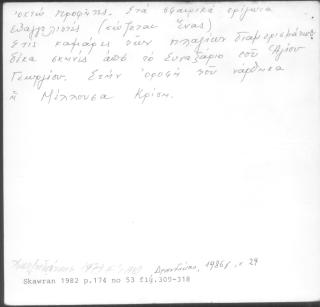 ὀκτώ προφῆτες. Στά σφαιρικά τρίγωνα
εὐαγγελιστές (σώζεται ἕνας)
Στίς καμάρες τῶν πλαγίων διαμερισμάτων
δέκα σκηνές ἀπό τό Συναξάριο τοῦ Ἁγίου
Γεωργίου. Στήν ὀροφή τοῦ νάρθηκα
ἡ Μέλλουσα Κρίση.
1986
Skawran 1982 p.174 no 53 fig.309-318